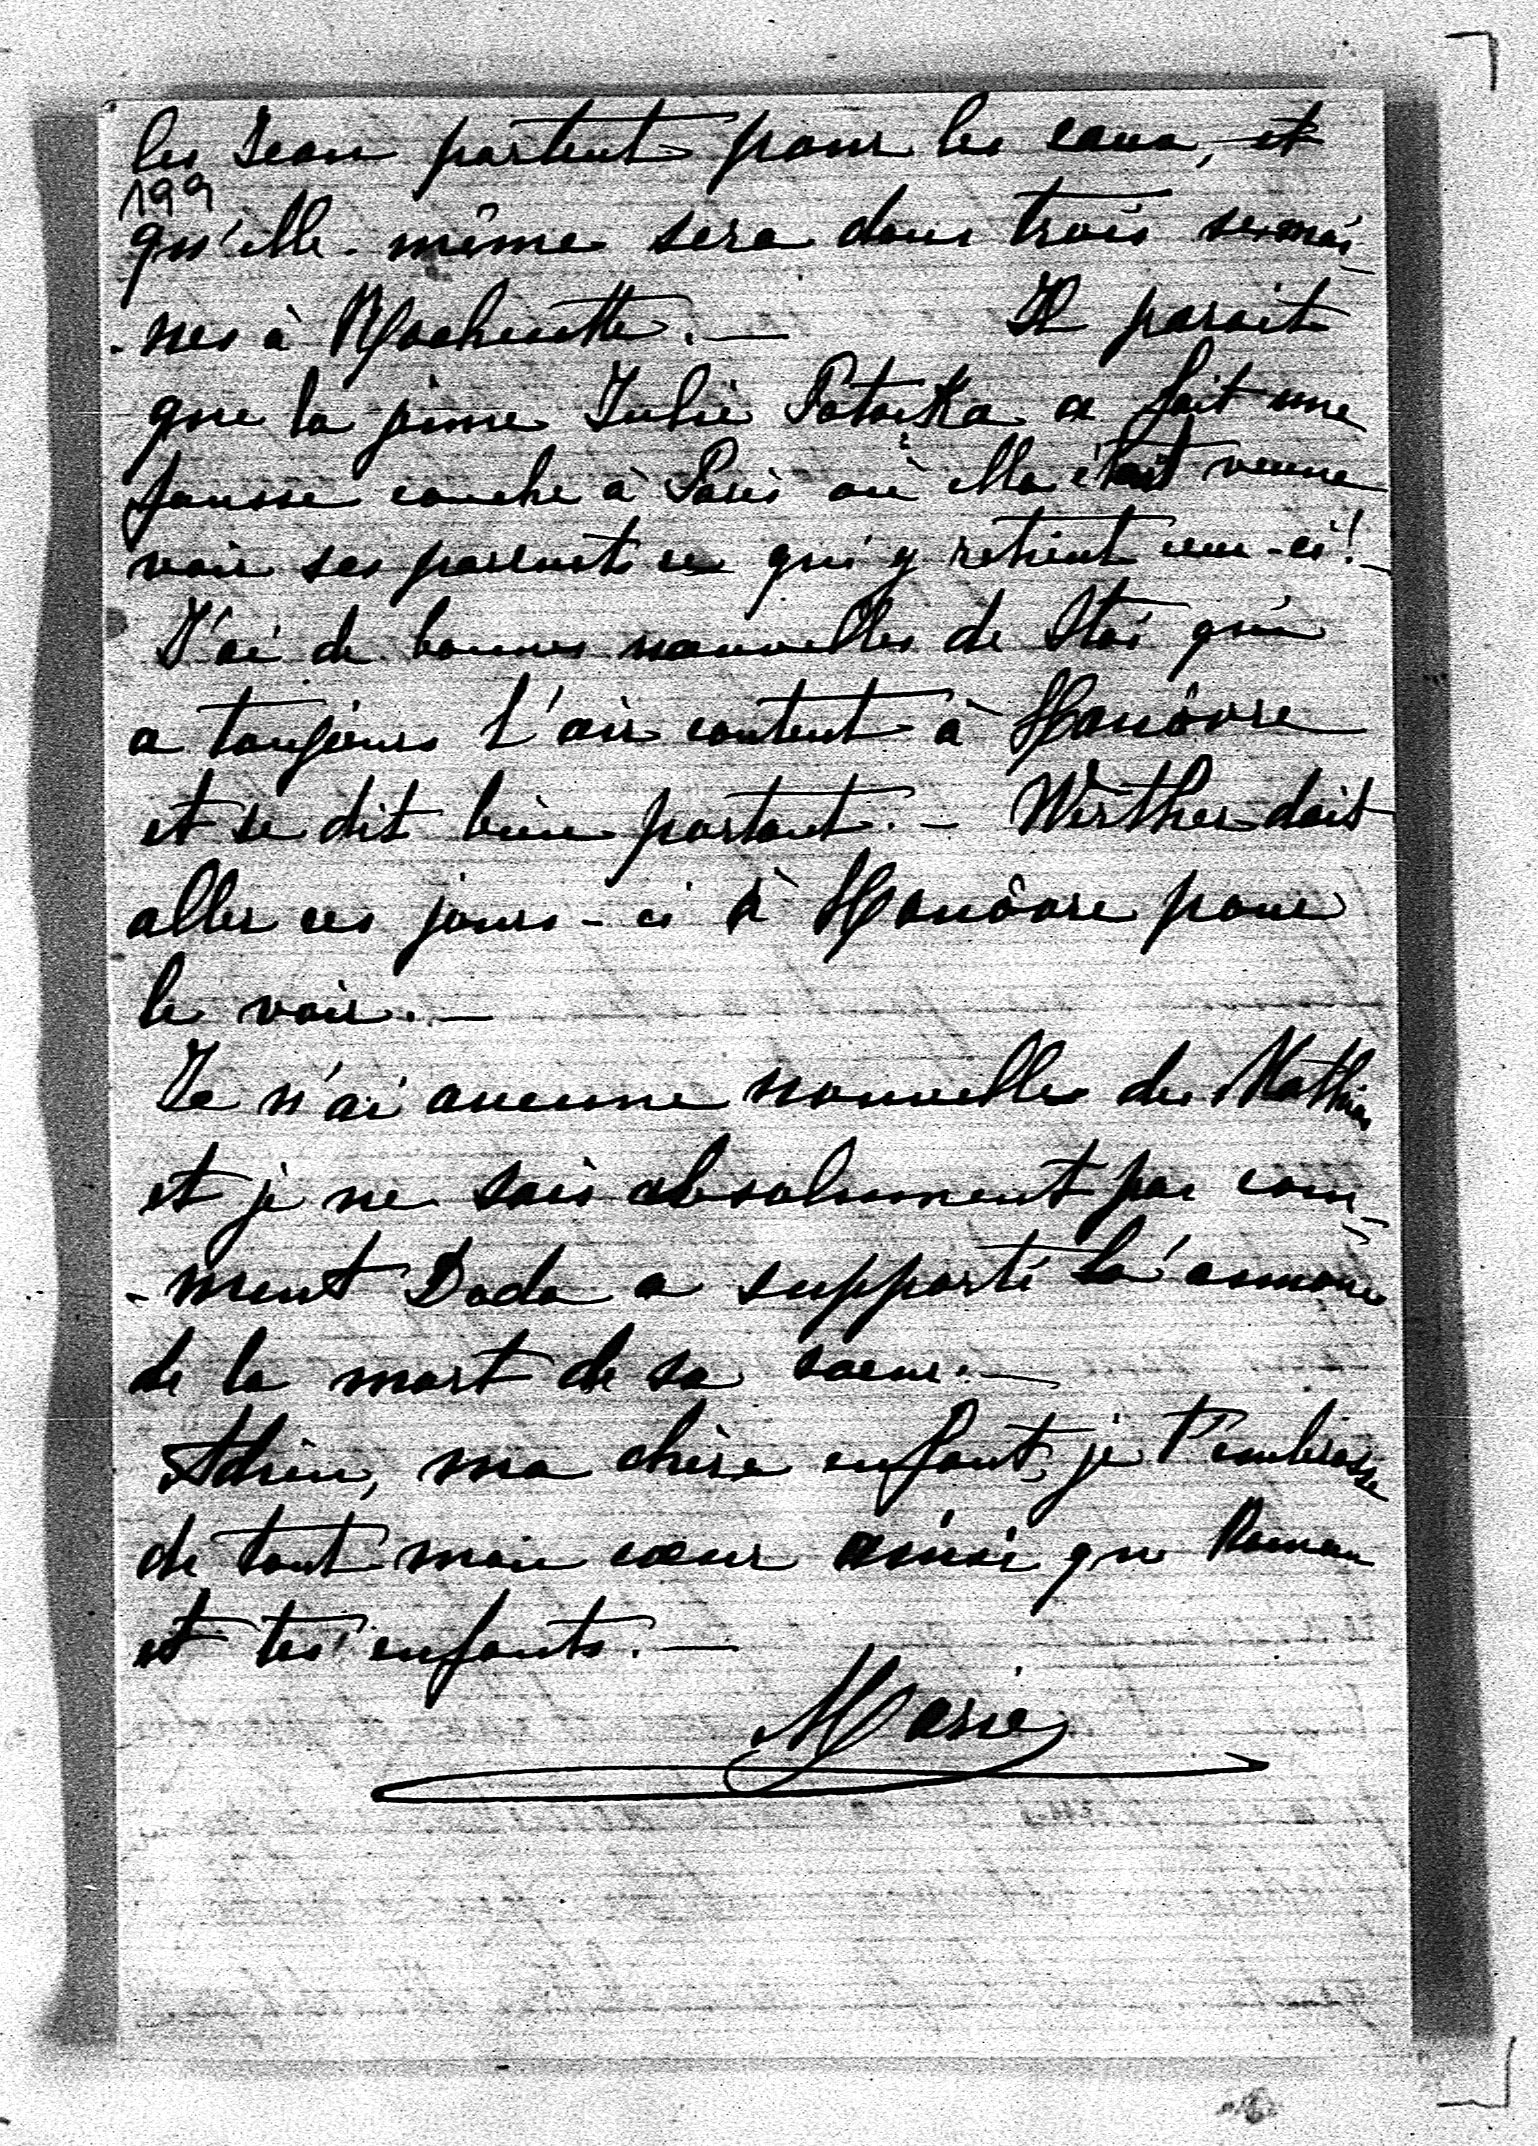 les Jean partent pour les eaux, et
199
qu'elle-même sera dans trois semai-
-nes à Rochecotte. — Il parait
que la jeune Julie Potocka a fait une
fausse couche à Paris où elle était venue
voir ses parents ce qui y retient ceux-ci! -
J'ai de bonnes nouvelles de Stas qui
a toujours l'air content à Hanôvre
et se dit bien portant. - Werther doit
aller ces jours-ci à Hanôvre pour
le voir. —
Je n'ai aucune nouvelle des
et je ne sais absolument pas com-
-ment Doda a supporté l'annonce
de la mort de sa soeur. —
Adieu, ma chère enfant, je t'embrasse
de tout mon coeur ainsi que Roman
et tes enfants. —
Marie